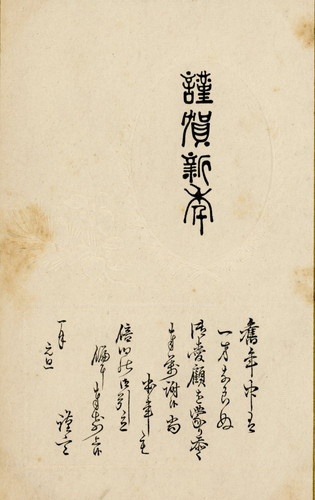 謹賀新年
舊年中は
一方ならぬ
御愛顧を蒙り忝く
奉萬謝候尚
本年も
倍旧の御引立
偏に奉上候
謹言
一月元旦